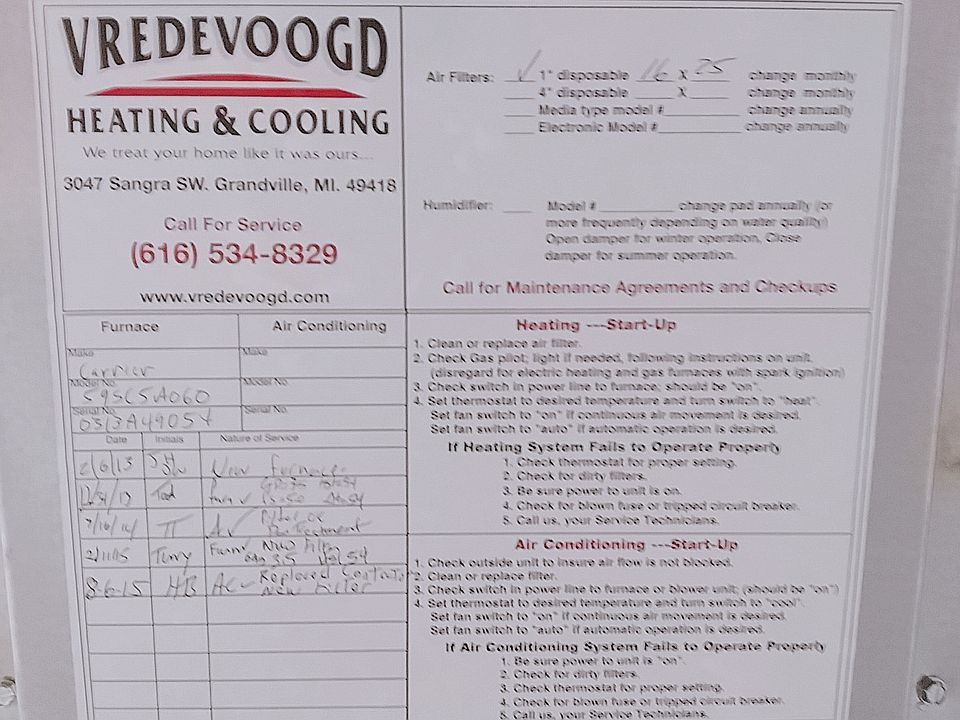 VREDEVOOGD
HEATING & COOLING
We treat your home like it was ours...
3047 Sangra SW. Grandville, MI. 49418
Call For Service
(616) 534-8329
www.vredevoogd.com
Air Filters: ✓ 1" disposable 16 X 25 change monthly
4" disposable X change monthly
Media type model # change annually
Electronic Model # change annually
Humidifier: Model # change pad annually (or
more frequently depending on water quality)
Open damper for winter operation, Close
damper for summer operation.
Call for Maintenance Agreements and Checkups
Furnace Air Conditioning
Make Make
Carrier
Model No. Model No.
59SC5A060
Serial No. Serial No.
0313A49054
Date Initials Nature of Service
2/6/13 New furnace
Tod
7/16/14 TT
2/11/15 Terry Furn New
8-6-15 HB AC Replaced
New Filter
Heating ---Start-Up
1. Clean or replace air filter.
2. Check Gas pilot; light if needed, following instructions on unit.
(disregard for electric heating and gas furnaces with spark ignition)
3. Check switch in power line to furnace; should be "on".
4. Set thermostat to desired temperature and turn switch to "heat".
Set fan switch to "on" if continuous air movement is desired.
Set fan switch to "auto" if automatic operation is desired.
If Heating System Fails to Operate Properly
1. Check thermostat for proper setting.
2. Check for dirty filters.
3. Be sure power to unit is on.
4. Check for blown fuse or tripped circuit breaker.
5. Call us, your Service Technicians.
Air Conditioning ---Start-Up
1. Check outside unit to insure air flow is not blocked.
2. Clean or replace filter.
3. Check switch in power line to furnace or blower unit; (should be "on")
4. Set thermostat to desired temperature and turn switch to "cool".
Set fan switch to "on" if continuous air movement is desired.
Set fan switch to "auto" if automatic operation is desired.
If Air Conditioning System Fails to Operate Properly
1. Be sure power to unit is "on".
2. Check for dirty filters.
3. Check thermostat for proper setting.
4. Check for blown fuse or tripped circuit breaker.
5. Call us, your Service Technicians.